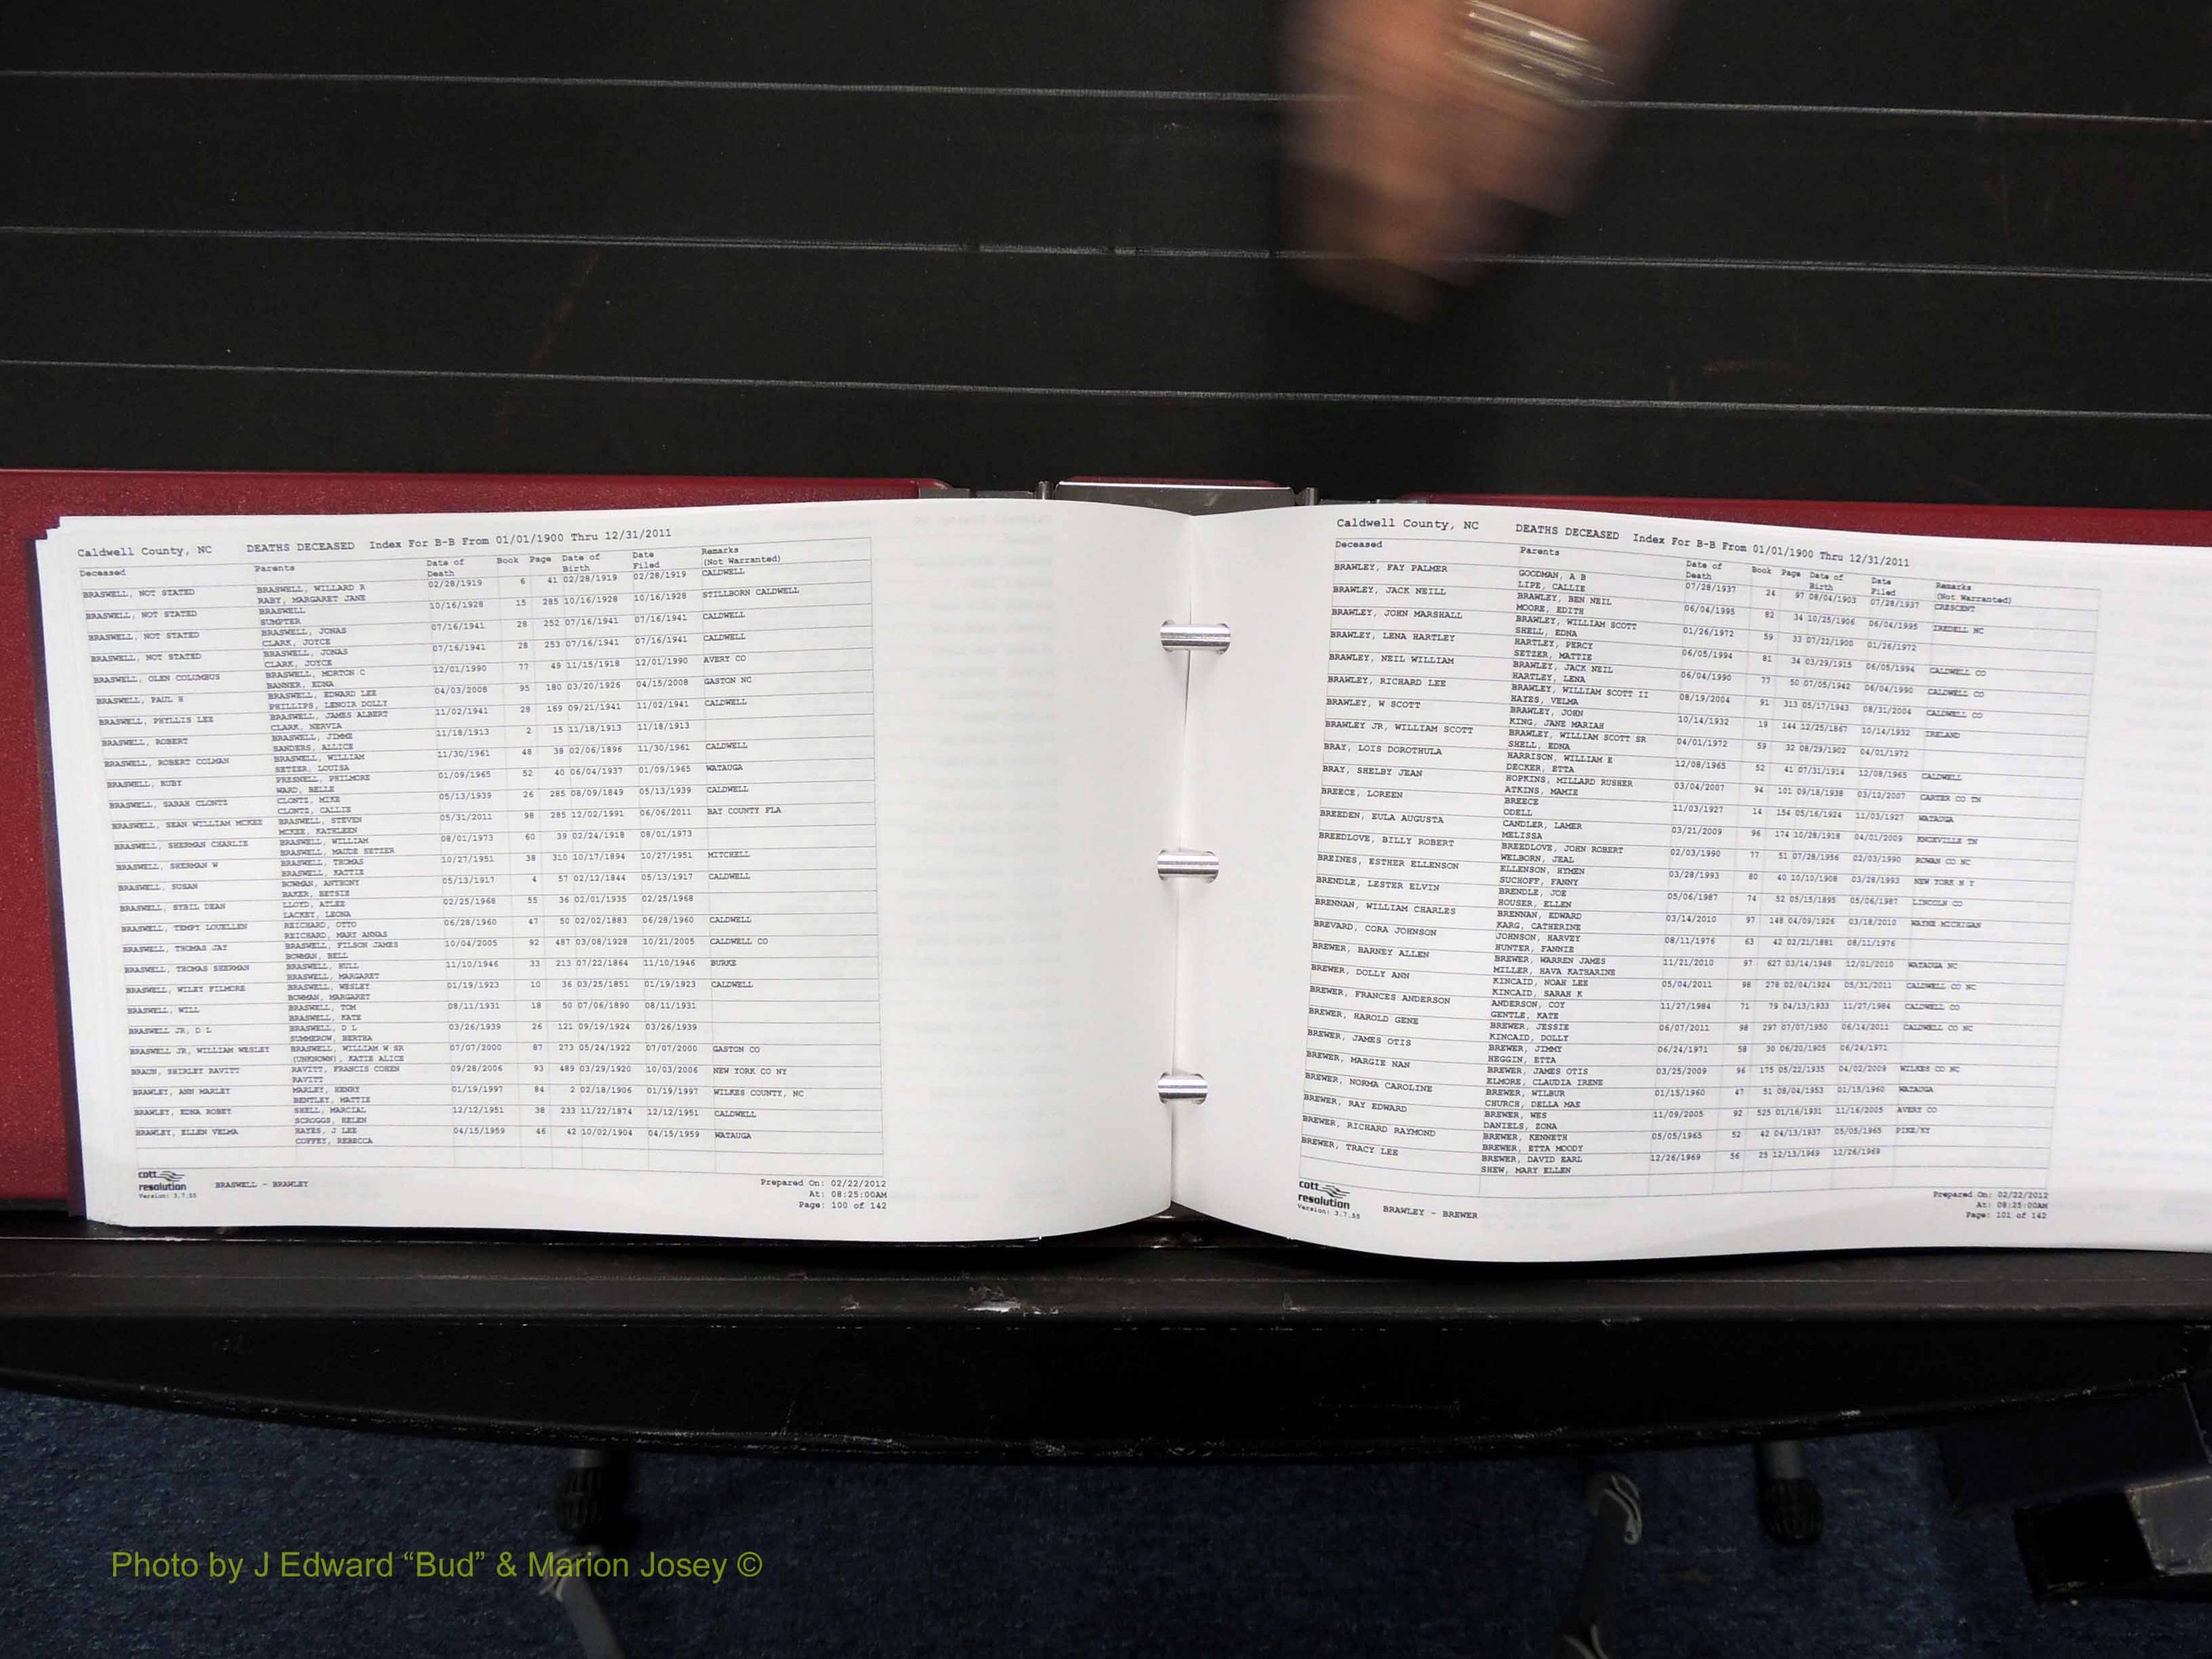 Caldwell County, NC DEATHS DECEASED Index For B-B From 01/01/1900 Thru 12/31/2011
Deceased Parents Date of Death Book Page Date of Birth Date Filed Remarks (Not Warranted)
BRASWELL, NOT STATED BRASWELL, WILLARD R 02/28/1919 6 41 02/28/1919 02/28/1919 CALDWELL
RABY, MARGARET JANE
BRASWELL, NOT STATED BRASWELL 10/16/1928 15 285 10/16/1928 10/16/1928 STILLBORN CALDWELL
SUMPTER
BRASWELL, NOT STATED BRASWELL, JONAS 07/16/1941 28 252 07/16/1941 07/16/1941 CALDWELL
CLARK, JOYCE
BRASWELL, NOT STATED BRASWELL, JONAS 07/16/1941 28 253 07/16/1941 07/16/1941 CALDWELL
CLARK, JOYCE
BRASWELL, OLEN COLUMBUS BRASWELL, MORTON C 12/01/1990 77 49 11/15/1918 12/01/1990 AVERY CO
BANNER, EDNA
BRASWELL, PAUL H BRASWELL, EDWARD LEE 04/03/2008 95 180 03/20/1926 04/15/2008 GASTON NC
PHILLIPS, LENOIR DOLLY
BRASWELL, PHYLLIS LEE BRASWELL, JAMES ALBERT 11/02/1941 28 169 09/21/1941 11/02/1941 CALDWELL
CLARK, NERVIA
BRASWELL, ROBERT BRASWELL, JIMME 11/18/1913 2 15 11/18/1913 11/18/1913
SANDERS, ALLICE
BRASWELL, ROBERT COLMAN BRASWELL, WILLIAM 11/30/1961 48 38 02/06/1896 11/30/1961 CALDWELL
SETZER, LOUISA
BRASWELL, RUBY PRESNELL, PHILMORE 01/09/1965 52 40 06/04/1937 01/09/1965 WATAUGA
WARD, BELLE
BRASWELL, SARAH CLONTZ CLONTZ, MIKE 05/13/1939 26 285 08/09/1849 05/13/1939 CALDWELL
CLONTZ, CALLIE
BRASWELL, SEAN WILLIAM MCKEE BRASWELL, STEVEN 05/31/2011 98 285 12/02/1991 06/06/2011 BAY COUNTY FLA
MCKEE, KATHLEEN
BRASWELL, SHERMAN CHARLIE BRASWELL, WILLIAM 08/01/1973 60 39 02/24/1918 08/01/1973
BRASWELL, MAUDE SETZER
BRASWELL, SHERMAN W BRASWELL, THOMAS 10/27/1951 38 310 10/17/1894 10/27/1951 MITCHELL
BRASWELL, KATTIE
BRASWELL, SUSAN BOWMAN, ANTHONY 05/13/1917 4 57 02/12/1844 05/13/1917 CALDWELL
BAKER, BETSIE
BRASWELL, SYBIL DEAN LLOYD, ATLEE 02/25/1968 55 36 02/01/1935 02/25/1968
LACKEY, LEONA
BRASWELL, TEMPY LOUELLEN REICHARD, OTTO 06/28/1960 47 50 02/02/1883 06/28/1960 CALDWELL
REICHARD, MARY ANNAS
BRASWELL, THOMAS JAY BRASWELL, FILSON JAMES 10/04/2005 92 487 03/08/1928 10/21/2005 CALDWELL CO
BOWMAN, BELL
BRASWELL, THOMAS SHERMAN BRASWELL, HULL 11/10/1946 33 213 07/22/1864 11/10/1946 BURKE
BRASWELL, MARGARET
BRASWELL, WILEY FILMORE BRASWELL, WESLEY 01/19/1923 10 36 03/25/1851 01/19/1923 CALDWELL
BOWMAN, MARGARET
BRASWELL, WILL BRASWELL, TOM 08/11/1931 18 50 07/06/1890 08/11/1931
BRASWELL, KATE
BRASWELL JR, D L BRASWELL, D L 03/26/1939 26 121 09/19/1924 03/26/1939
SUMMEROW, BERTHA
BRASWELL JR, WILLIAM WESLEY BRASWELL, WILLIAM W SR 07/07/2000 87 273 05/24/1922 07/07/2000 GASTON CO
(UNKNOWN), KATIE ALICE
BRAUN, SHIRLEY RAVITT RAVITT, FRANCIS COHEN 09/28/2006 93 489 03/29/1920 10/03/2006 NEW YORK CO NY
RAVITT
BRAWLEY, ANN MARLEY MARLEY, HENRY 01/19/1997 84 2 02/18/1906 01/19/1997 WILKES COUNTY, NC
BENTLEY, MATTIE
BRAWLEY, EDNA ROBEY SHELL, MARCIAL 12/12/1951 38 233 11/22/1874 12/12/1951 CALDWELL
SCROGGS, HELEN
BRAWLEY, ELLEN VELMA HAYES, J LEE 04/15/1959 46 42 10/02/1904 04/15/1959 WATAUGA
COFFEY, REBECCA
cott
resolution
Version: 3.7.55
BRASWELL - BRAWLEY
Prepared On: 02/22/2012
At: 08:25:00AM
Page: 100 of 142
Caldwell County, NC DEATHS DECEASED Index For B-B From 01/01/1900 Thru 12/31/2011
Deceased Parents Date of Death Book Page Date of Birth Date Filed Remarks (Not Warranted)
BRAWLEY, FAY PALMER GOODMAN, A B 07/28/1937 24 97 08/04/1903 07/28/1937 CRESCENT
LIPE, CALLIE
BRAWLEY, JACK NEILL BRAWLEY, BEN NEIL 06/04/1995 82 34 10/25/1906 06/04/1995 IREDELL NC
MOORE, EDITH
BRAWLEY, JOHN MARSHALL BRAWLEY, WILLIAM SCOTT 01/26/1972 59 33 07/22/1900 01/26/1972
SHELL, EDNA
BRAWLEY, LENA HARTLEY HARTLEY, PERCY 06/05/1994 81 34 03/29/1915 06/05/1994 CALDWELL CO
SETZER, MATTIE
BRAWLEY, NEIL WILLIAM BRAWLEY, JACK NEIL 06/04/1990 77 50 07/05/1942 06/04/1990 CALDWELL CO
HARTLEY, LENA
BRAWLEY, RICHARD LEE BRAWLEY, WILLIAM SCOTT II 08/19/2004 91 313 05/17/1943 08/31/2004 CALDWELL CO
HAYES, VELMA
BRAWLEY, W SCOTT BRAWLEY, JOHN 10/14/1932 19 144 12/25/1867 10/14/1932 IRELAND
KING, JANE MARIAH
BRAWLEY JR, WILLIAM SCOTT BRAWLEY, WILLIAM SCOTT SR 04/01/1972 59 32 08/29/1902 04/01/1972
SHELL, EDNA
BRAY, LOIS DOROTHULA HARRISON, WILLIAM E 12/08/1965 52 41 07/31/1914 12/08/1965 CALDWELL
DECKER, ETTA
BRAY, SHELBY JEAN HOPKINS, MILLARD RUSHER 03/04/2007 94 101 09/18/1938 03/12/2007 CARTER CO TN
ATKINS, MAMIE
BREECE, LOREEN BREECE 11/03/1927 14 154 05/16/1924 11/03/1927 WATAUGA
ODELL
BREEDEN, EULA AUGUSTA CANDLER, LAMER 03/21/2009 96 174 10/28/1918 04/01/2009 KNOXVILLE TN
MELISSA
BREEDLOVE, BILLY ROBERT BREEDLOVE, JOHN ROBERT 02/03/1990 77 51 07/28/1956 02/03/1990 ROWAN CO NC
WELBORN, JEAL
BREINES, ESTHER ELLENSON ELLENSON, HYMEN 03/28/1993 80 40 10/10/1908 03/28/1993 NEW YORK N Y
SUCHOFF, FANNY
BRENDLE, LESTER ELVIN BRENDLE, JOE 05/06/1987 74 52 05/15/1895 05/06/1987 LINCOLN CO
HOUSER, ELLEN
BRENNAN, WILLIAM CHARLES BRENNAN, EDWARD 03/14/2010 97 148 04/09/1926 03/18/2010 WAYNE MICHIGAN
KARG, CATHERINE
BREVARD, CORA JOHNSON JOHNSON, HARVEY 08/11/1976 63 42 02/21/1881 08/11/1976
HUNTER, FANNIE
BREWER, BARNEY ALLEN BREWER, WARREN JAMES 11/21/2010 97 627 03/14/1948 12/01/2010 WATAUGA NC
MILLER, HAVA KATHARINE
BREWER, DOLLY ANN KINCAID, NOAH LEE 05/04/2011 98 278 02/04/1924 05/31/2011 CALDWELL CO NC
KINCAID, SARAH K
BREWER, FRANCES ANDERSON ANDERSON, COY 11/27/1984 71 79 04/13/1933 11/27/1984 CALDWELL CO
GENTLE, KATE
BREWER, HAROLD GENE BREWER, JESSIE 06/07/2011 98 297 07/07/1950 06/14/2011 CALDWELL CO NC
KINCAID, DOLLY
BREWER, JAMES OTIS BREWER, JIMMY 06/24/1971 58 30 06/20/1905 06/24/1971
HEGGIN, ETTA
BREWER, MARGIE NAN BREWER, JAMES OTIS 03/25/2009 96 175 05/22/1935 04/02/2009 WILKES CO NC
ELMORE, CLAUDIA IRENE
BREWER, NORMA CAROLINE BREWER, WILBUR 01/15/1960 47 51 08/04/1953 01/15/1960 WATAUGA
CHURCH, DELLA MAE
BREWER, RAY EDWARD BREWER, WES 11/09/2005 92 525 01/16/1931 11/16/2005 AVERY CO
DANIELS, ZONA
BREWER, RICHARD RAYMOND BREWER, KENNETH 05/05/1965 52 42 04/13/1937 05/05/1965 PIKE/KY
BREWER, ETTA MOODY
BREWER, TRACY LEE BREWER, DAVID EARL 12/26/1969 56 25 12/13/1969 12/26/1969
SHEW, MARY ELLEN
cott
resolution
Version: 3.7.55
BRAWLEY - BREWER
Prepared On: 02/22/2012
At: 08:25:00AM
Page: 101 of 142
Photo by J Edward “Bud” & Marion Josey ©